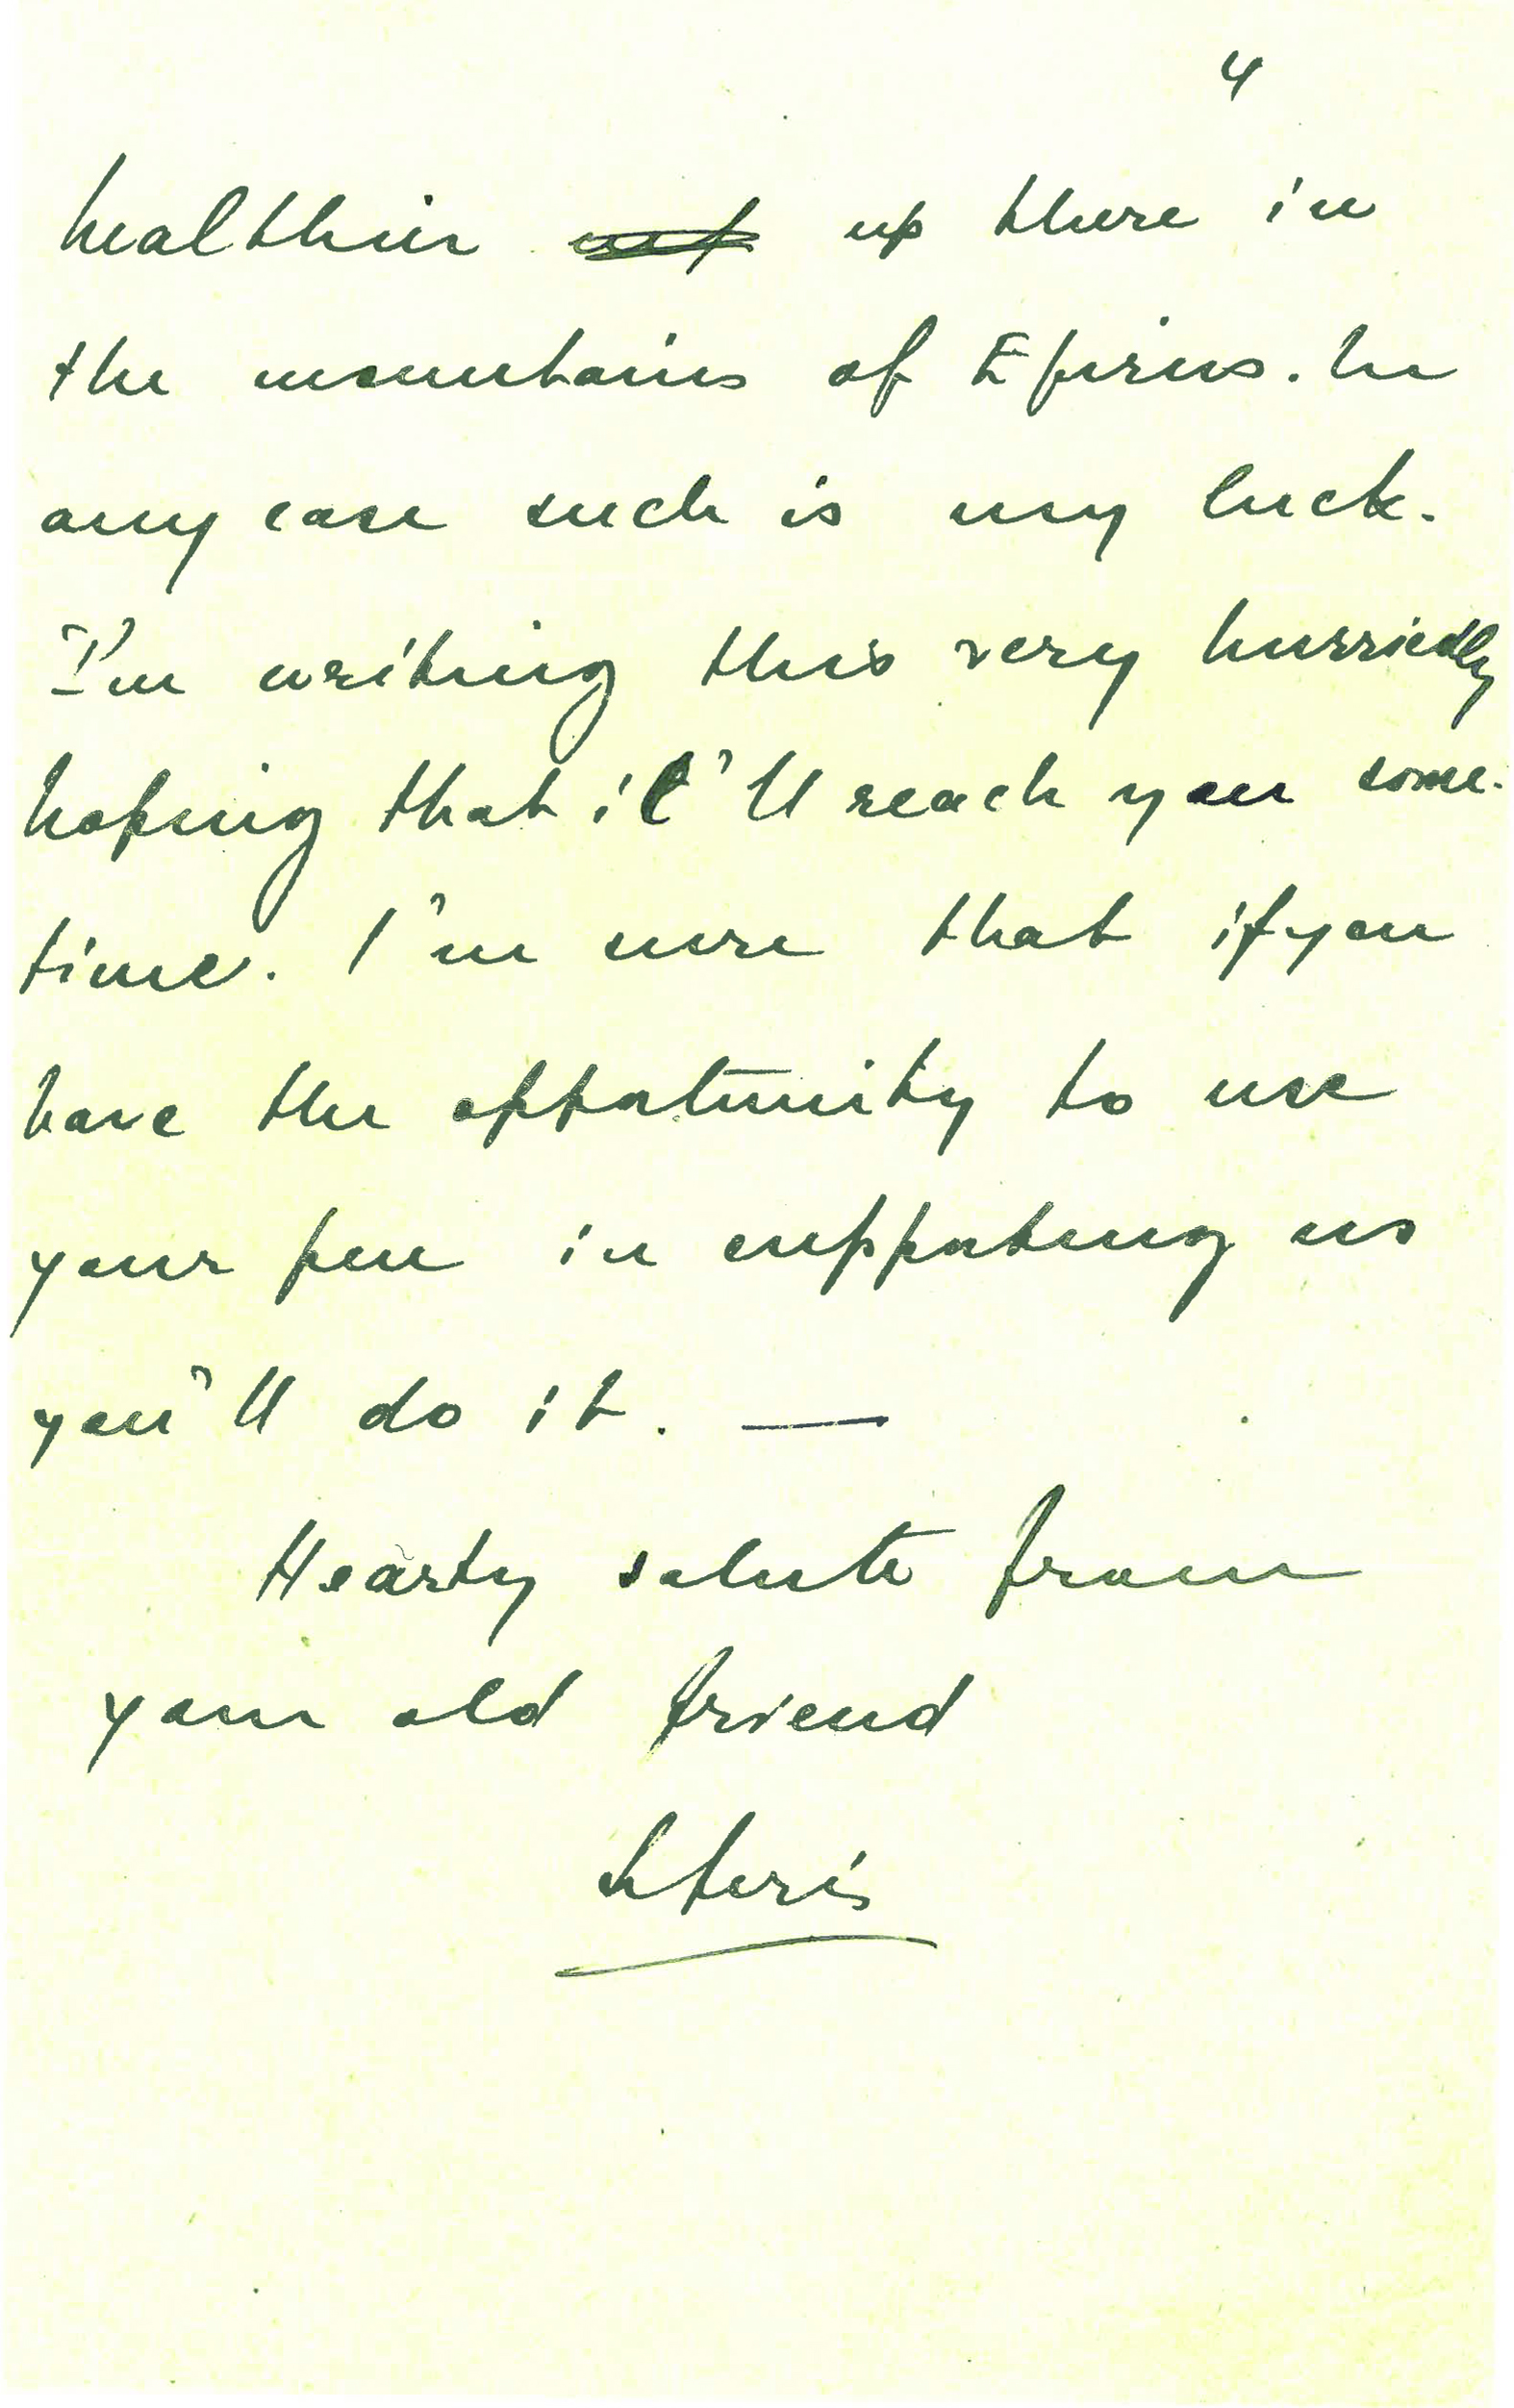 4
healthier up there in
the mountains of Epirus. In
any case such is my luck.
I'm writing this very hurriedly
hoping that it'll reach you some-
time. I'm sure that if you
have the opportunity to use
your pen in supporting us
you'll do it. —
Hearty salute from
your old friend